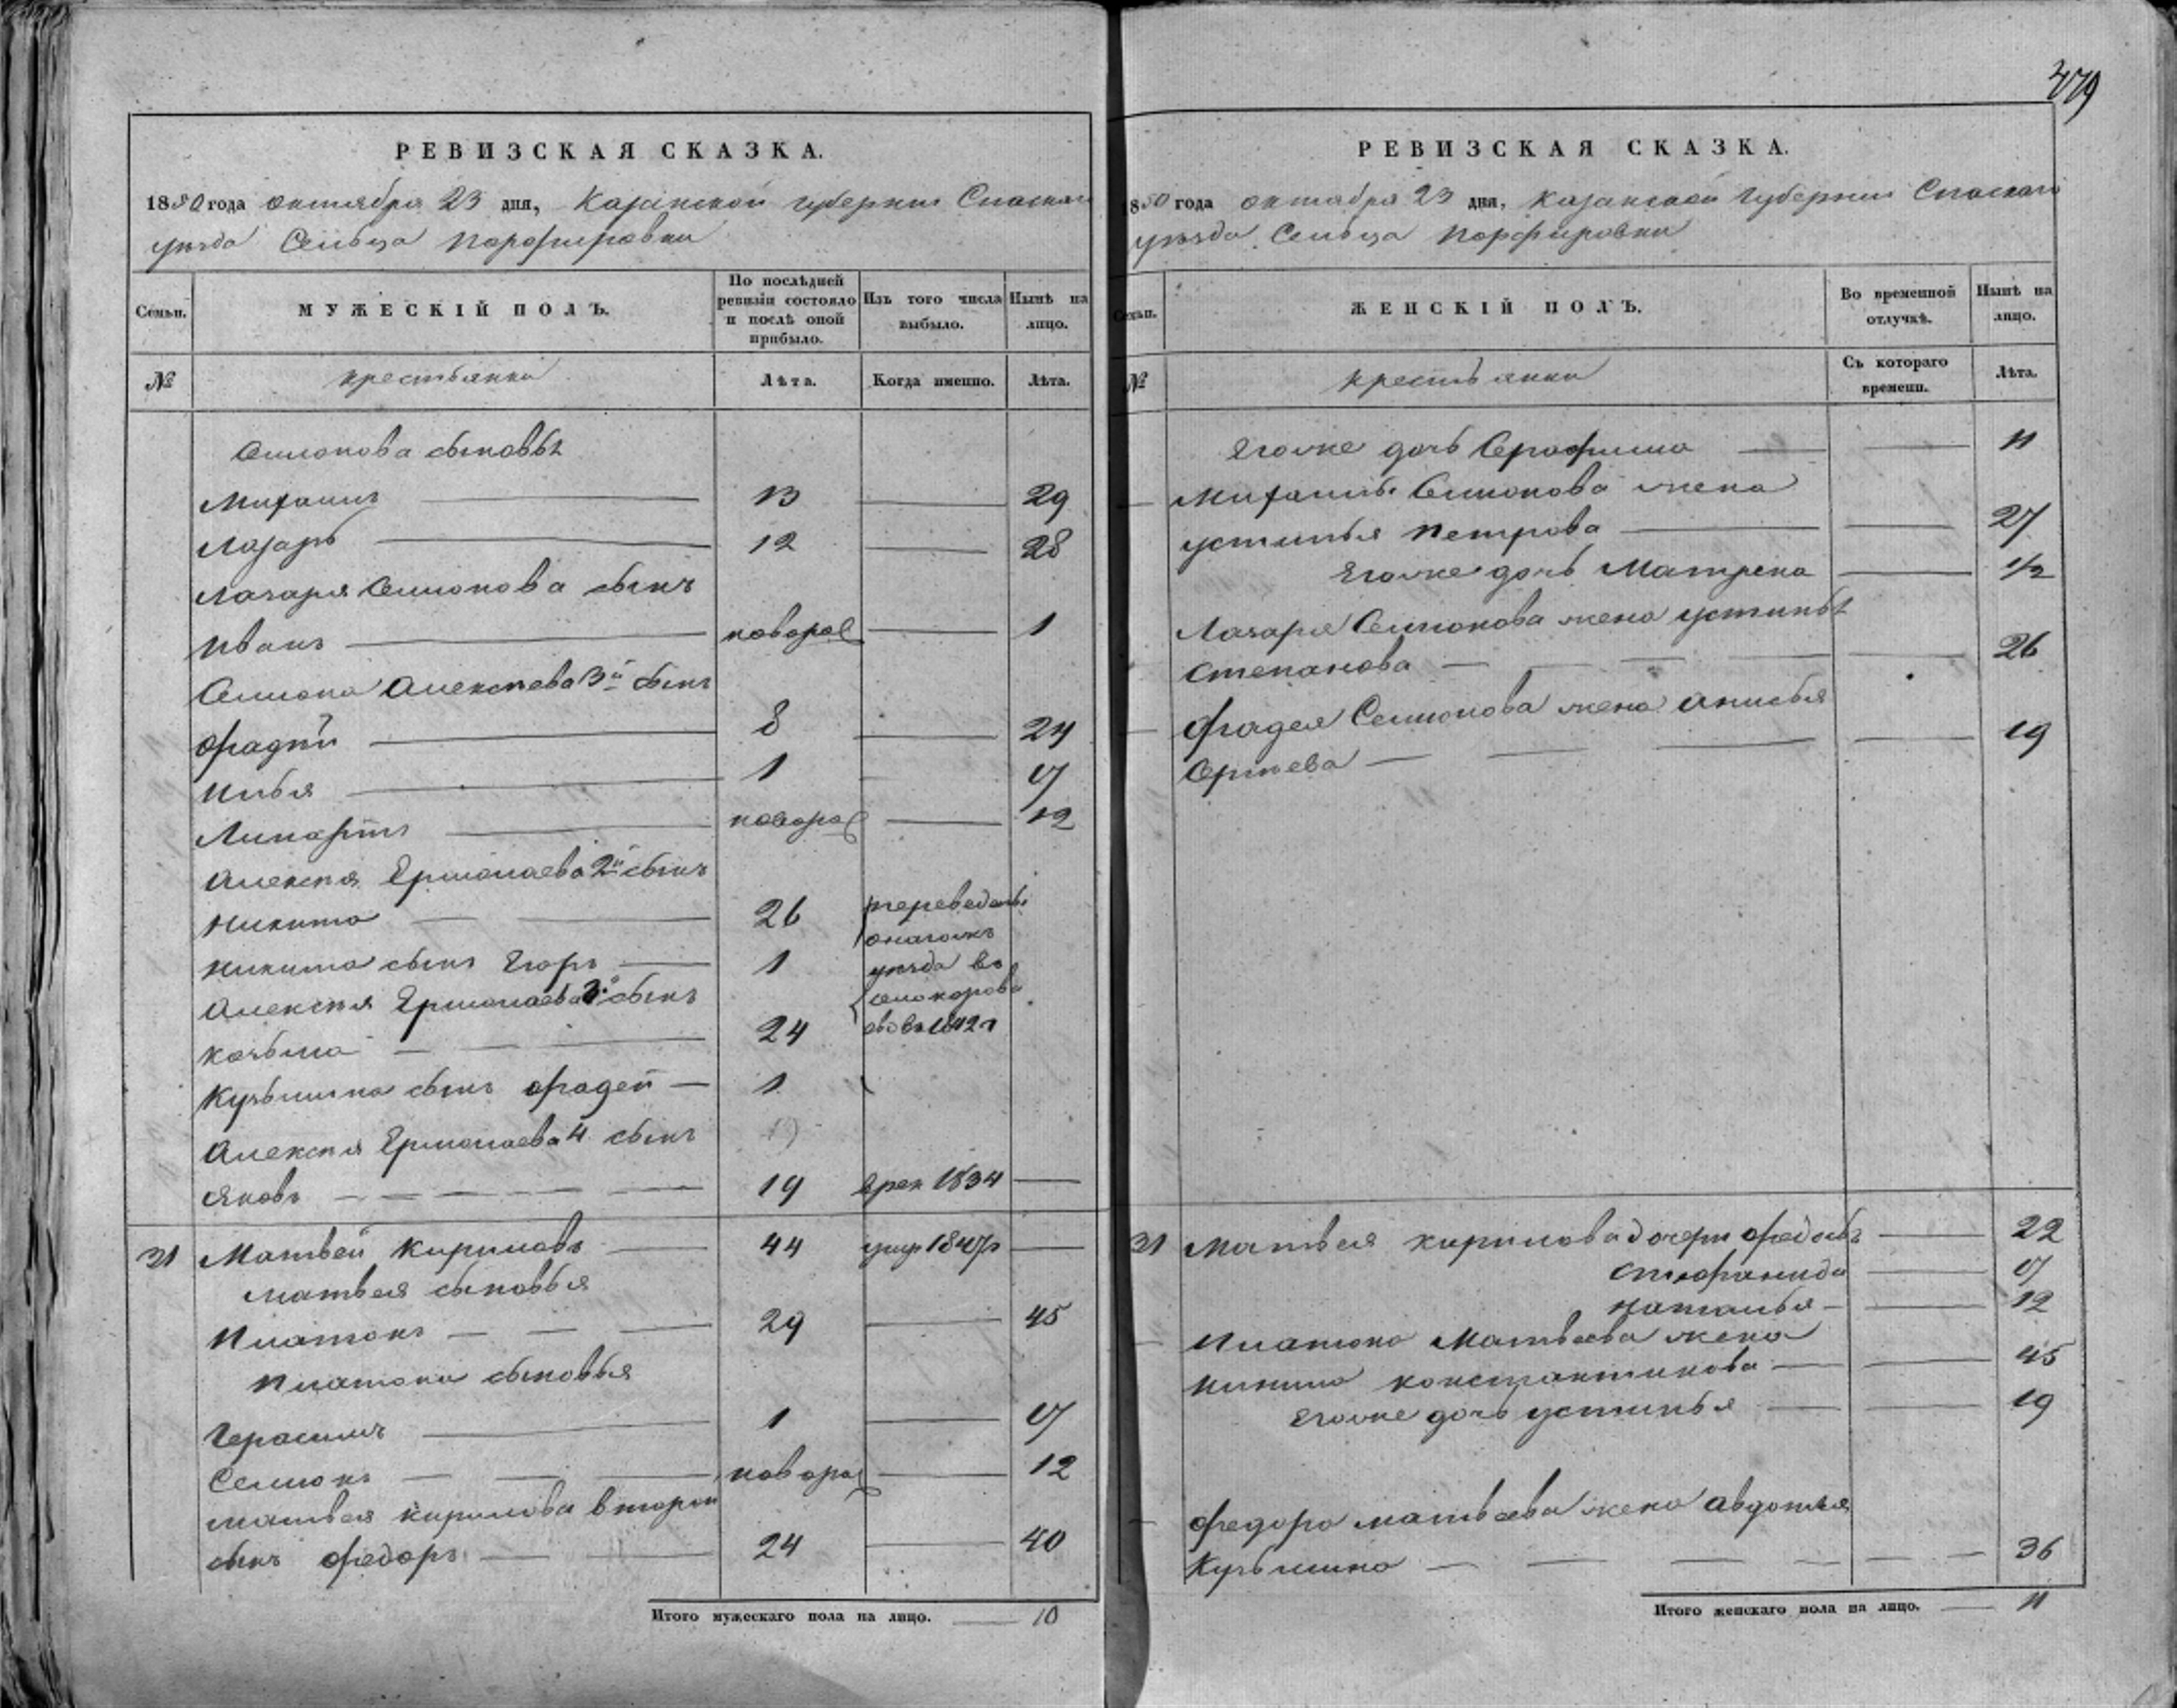 479
РЕВИЗСКАЯ СКАЗКА.
1850 года октября 23 дня, Казанской губернии Спаскаго
уезда Сельца Порфировки
Семьи. МУЖЕСКІЙ ПОЛЪ. По послѣдней ревизіи состояло и послѣ оной прибыло. Изъ того числа выбыло. Нынѣ на лицо.
№ крестьянки Лѣта. Когда именно. Лѣта.
Семионова сыновьѣ
Михаилъ 13 29
Лазарь 12 28
Лазаря Семионова сынъ
Иванъ новорож 1
Семиона Алексѣева 3й сынъ
Фадѣй 8 24
Илья 1 17
новорож 12
Алексѣя Ермолаева 2й сынъ
Никита 26 переведены
Никита сынъ Егоръ 1 уѣзда во
Алексѣя Ермолаева 3й сынъ
Козьма 24 1842г
Кузьмина сынъ Фадей 1
Алексѣя Ермолаева 4 сынъ
Яковъ 19 врек 1834
31 Матвей Кириловъ 44 1847г
Матвея сыновья
Платонъ 29 45
Платона сыновья
Герасимъ 1 17
Семионъ новорож 12
Матвея Кирилова второй
сынъ Федоръ 24 40
Итого мужескаго пола на лицо. 10
РЕВИЗСКАЯ СКАЗКА.
1850 года октября 23 дня, Казанской Губернии Спаскаго
уѣзда Сельца Порфировки
Семьи. ЖЕНСКІЙ ПОЛЪ. Во временной отлучкѣ. Нынѣ на лицо.
№ крестьянки Съ котораго времени. Лѣта.
Егоже дочь Серафима 11
Михаилы Семионова жена
Устинья Петрова 27
Егоже дочь Матрена 1/2
Лазаря Семионова жена Устиньѣ
Степанова 26
Фадея Семионова жена Анисья
Сергѣева 19
31 Матвея Кирилова дочери Федось 22
17
Наталья 12
Платона Матвеева жена
Константинова 45
Егоже дочь Устинья 19
Федора Матвеева жена Авдотья
Кузьмина 36
Итого женскаго пола на лицо. 11